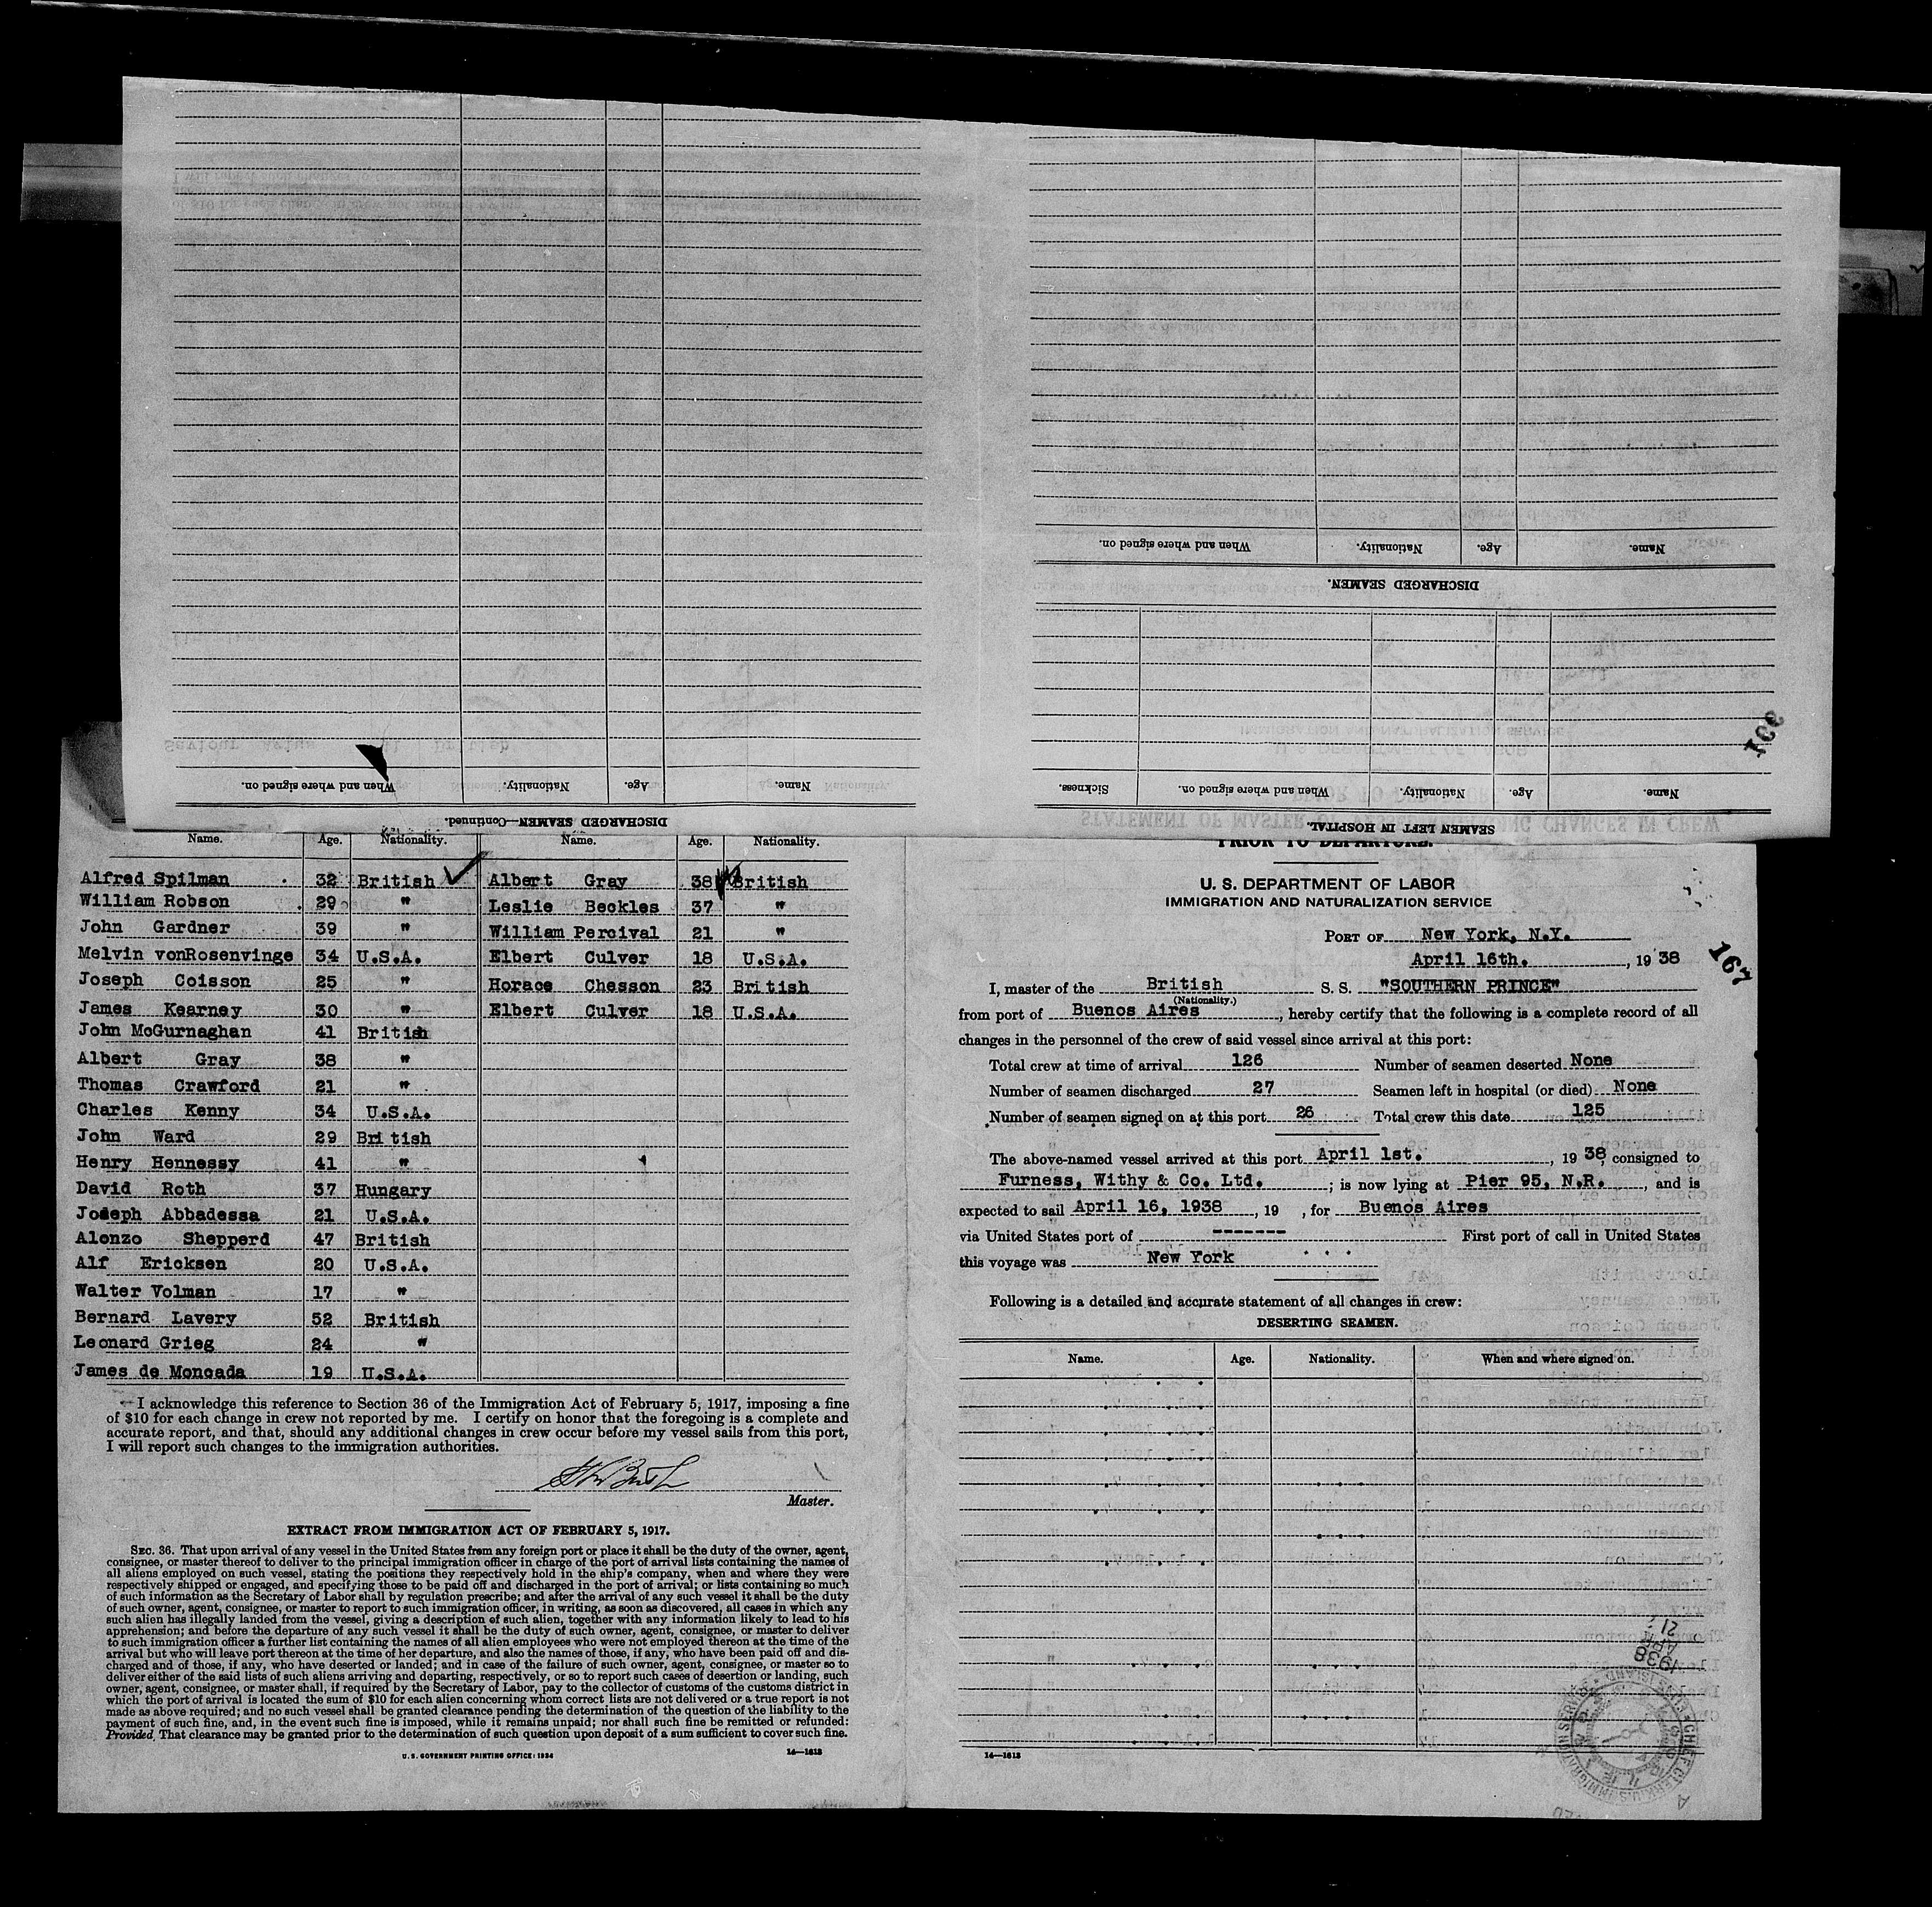 DISCHARGED SEAMEN—Continued.
Name. Age. Nationality. When and where signed on.
SEAMEN LEFT IN HOSPITAL.
Name. Age. Nationality. When and where signed on. Sickness.
DISCHARGED SEAMEN.
Name. Age. Nationality. When and where signed on.
Name. Age. Nationality. Name. Age. Nationality.
Alfred Spilman 32 British Albert Gray 38 British
William Robson 29 " Leslie Beckles 37 "
John Gardner 39 " William Percival 21 "
Melvin vonRosenvinge 34 U.S.A. Elbert Culver 18 U.S.A.
Joseph Coisson 25 " Horace Chesson 23 British
James Kearney 30 " Elbert Culver 18 U.S.A.
John McGurnaghan 41 British
Albert Gray 38 "
Thomas Crawford 21 "
Charles Kenny 34 U.S.A.
John Ward 29 British
Henry Hennessy 41 "
David Roth 37 Hungary
Joseph Abbadessa 21 U.S.A.
Alonzo Shepperd 47 British
Alf Ericksen 20 U.S.A.
Walter Volman 17 "
Bernard Lavery 52 British
Leonard Grieg 24 "
James de Moncada 19 U.S.A.
I acknowledge this reference to Section 36 of the Immigration Act of February 5, 1917, imposing a fine
of $10 for each change in crew not reported by me. I certify on honor that the foregoing is a complete and
accurate report, and that, should any additional changes in crew occur before my vessel sails from this port,
I will report such changes to the immigration authorities.
Master.
EXTRACT FROM IMMIGRATION ACT OF FEBRUARY 5, 1917.
SEC. 36. That upon arrival of any vessel in the United States from any foreign port or place it shall be the duty of the owner, agent,
consignee, or master thereof to deliver to the principal immigration officer in charge of the port of arrival lists containing the names of
all aliens employed on such vessel, stating the positions they respectively hold in the ship's company, when and where they were
respectively shipped or engaged, and specifying those to be paid off and discharged in the port of arrival; or lists containing so much
of such information as the Secretary of Labor shall by regulation prescribe; and after the arrival of any such vessel it shall be the duty
of such owner, agent, consignee, or master to report to such immigration officer, in writing, as soon as discovered, all cases in which any
such alien has illegally landed from the vessel, giving a description of such alien, together with any information likely to lead to his
apprehension; and before the departure of any such vessel it shall be the duty of such owner, agent, consignee, or master to deliver
to such immigration officer a further list containing the names of all alien employees who were not employed thereon at the time of the
arrival but who will leave port thereon at the time of her departure, and also the names of those, if any, who have been paid off and dis-
charged and of those, if any, who have deserted or landed; and in case of the failure of such owner, agent, consignee, or master so to
deliver either of the said lists of such aliens arriving and departing, respectively, or so to report such cases of desertion or landing, such
owner, agent, consignee, or master shall, if required by the Secretary of Labor, pay to the collector of customs of the customs district in
which the port of arrival is located the sum of $10 for each alien concerning whom correct lists are not delivered or a true report is not
made as above required; and no such vessel shall be granted clearance pending the determination of the question of the liability to the
payment of such fine, and, in the event such fine is imposed, while it remains unpaid; nor shall such fine be remitted or refunded:
Provided, That clearance may be granted prior to the determination of such question upon deposit of a sum sufficient to cover such fine.
U. S. GOVERNMENT PRINTING OFFICE: 1934 14—1613
PRIOR TO DEPARTURE.
U. S. DEPARTMENT OF LABOR
IMMIGRATION AND NATURALIZATION SERVICE
PORT OF New York, N.Y.
167
April 16th., 1938
I, master of the British S. S. "SOUTHERN PRINCE"
(Nationality.)
from port of Buenos Aires, hereby certify that the following is a complete record of all
changes in the personnel of the crew of said vessel since arrival at this port:
Total crew at time of arrival 126 Number of seamen deserted None
Number of seamen discharged 27 Seamen left in hospital (or died) None
Number of seamen signed on at this port 26 Total crew this date 125
The above-named vessel arrived at this port April 1st., 1938, consigned to
Furness, Withy & Co. Ltd.; is now lying at Pier 95, N.R., and is
expected to sail April 16, 1938, 19 , for Buenos Aires
via United States port of ------- First port of call in United States
this voyage was New York
Following is a detailed and accurate statement of all changes in crew:
DESERTING SEAMEN.
Name. Age. Nationality. When and where signed on.
14—1613
1938
APR
21